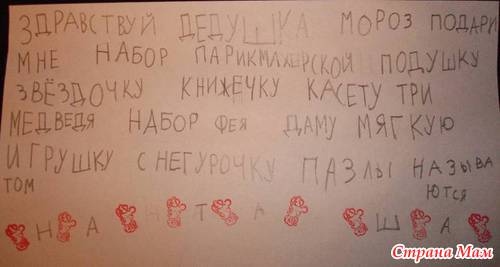 ЗДРАВСТВУЙ ДЕДУШКА МОРОЗ ПОДАРИ
МНЕ НАБОР ПАРИКМАХЕРСКОЙ ПОДУШКУ
ЗВЁЗДОЧКУ КНИЖЕЧКУ КАСЕТУ ТРИ
МЕДВЕДЯ НАБОР ФЕЯ ДАМУ МЯГКУЮ
ИГРУШКУ СНЕГУРОЧКУ ПАЗЛЫ НАЗЫВА
ТОМ ЮТСЯ
НАТАША
Страна Мам